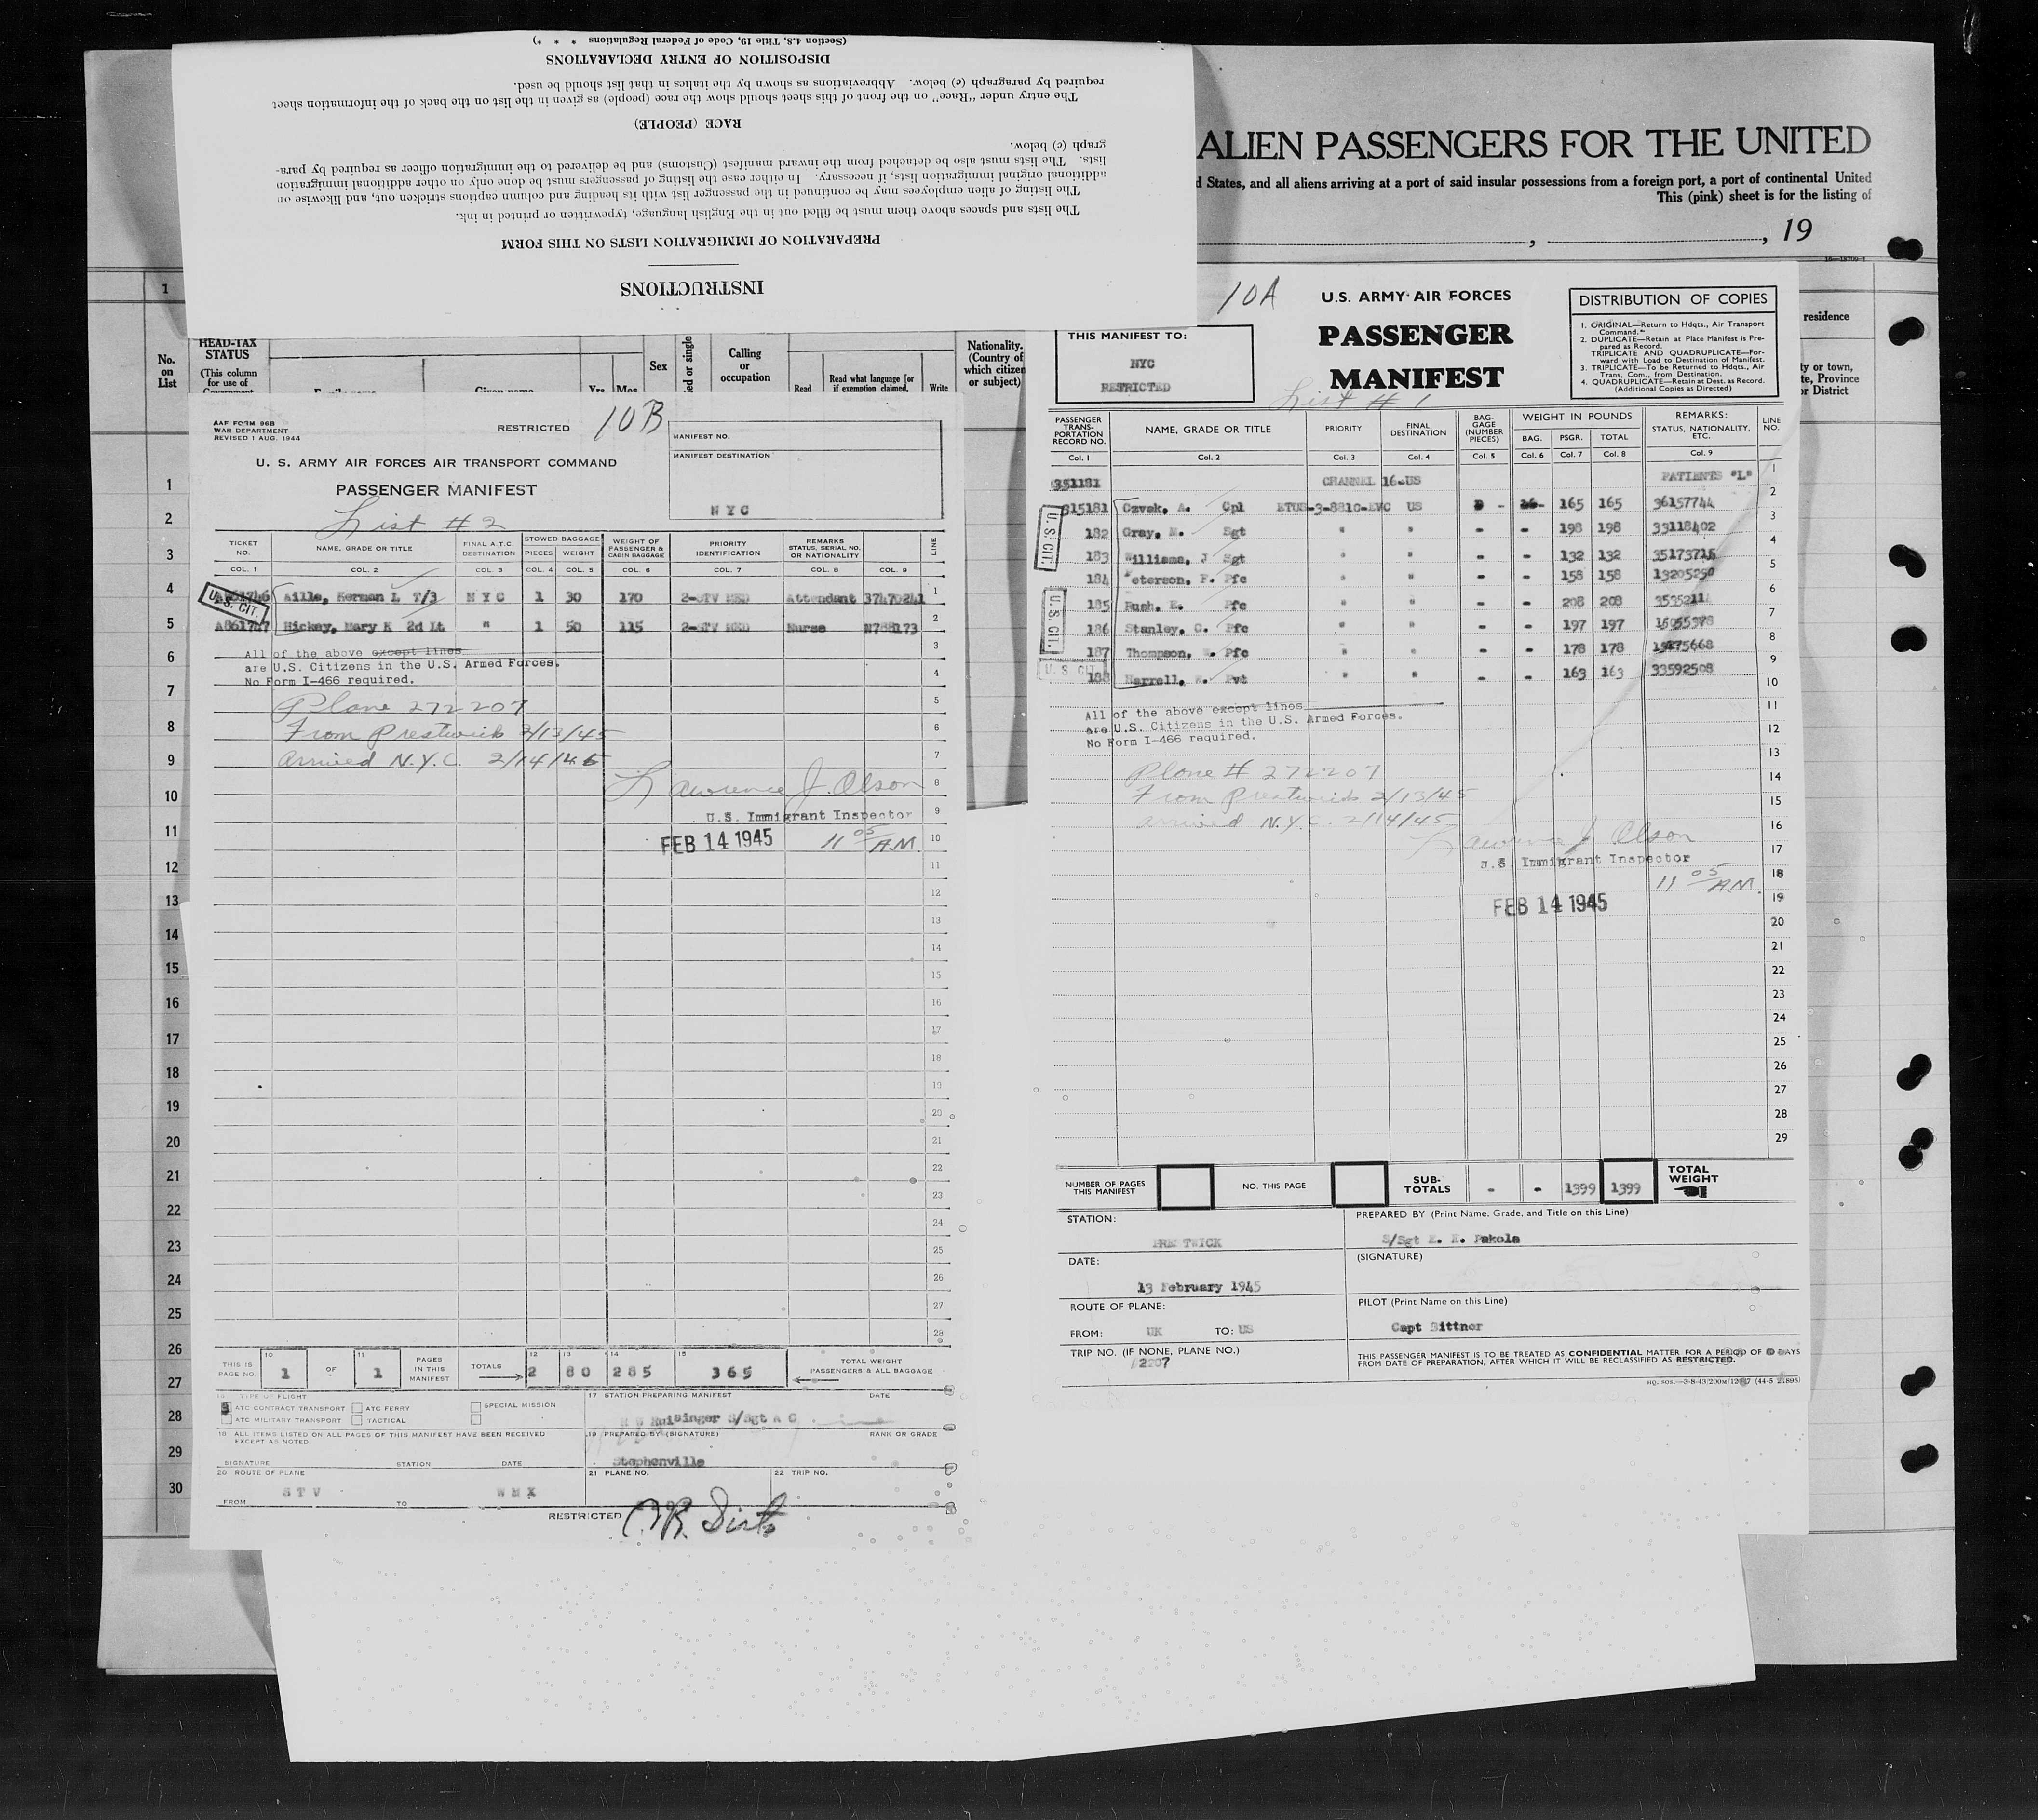 (Section 4.8, Title 19, Code of Federal Regulations * * *)
DISPOSITION OF ENTRY DECLARATIONS
required by paragraph (e) below. Abbreviations as shown by the italics in that list should be used.
The entry under "Race" on the front of this sheet should show the race (people) as given in the list on the back of the information sheet
RACE (PEOPLE)
graph (c) below.
lists. The lists must also be detached from the inward manifest (Customs) and be delivered to the immigration officer as required by para-
additional original immigration lists, if necessary. In either case the listing of passengers must be done only on other additional immigration
The listing of alien employees may be continued in the passenger list with its heading and column captions stricken out, and likewise on
The lists and spaces above them must be filled out in the English language, typewritten or printed in ink.
PREPARATION OF IMMIGRATION LISTS ON THIS FORM
INSTRUCTIONS
ALIEN PASSENGERS FOR THE UNITED
d States, and all aliens arriving at a port of said insular possessions from a foreign port, a port of continental United
This (pink) sheet is for the listing of
, , 19
1
No. on List
HEAD-TAX STATUS
(This column for use of
Sex
ed or single
Calling or occupation
Read
Read what language [or if exemption claimed,
Write
Nationality. (Country of which citizen or subject)
residence
ty or town, te, Province or District
1
2
3
4
5
6
7
8
9
10
11
12
13
14
15
16
17
18
19
20
21
22
23
24
25
26
27
28
29
30
AAF FORM 96B
WAR DEPARTMENT
REVISED 1 AUG. 1944
RESTRICTED
10B
MANIFEST NO.
MANIFEST DESTINATION
NYC
U. S. ARMY AIR FORCES AIR TRANSPORT COMMAND
PASSENGER MANIFEST
List # 2
TICKET NO. NAME, GRADE OR TITLE FINAL A.T.C. DESTINATION STOWED BAGGAGE PIECES WEIGHT WEIGHT OF PASSENGER & CABIN BAGGAGE PRIORITY IDENTIFICATION REMARKS STATUS, SERIAL NO. OR NATIONALITY LINE
COL. 1 COL. 2 COL. 3 COL. 4 COL. 5 COL. 6 COL. 7 COL. 8 COL. 9
U.S. CIT.
Aills, Herman L T/3 N Y C 1 30 170 2-STV MED Attendant 37470241 1
A861747 Hickey, Mary K 2d Lt " 1 50 115 2-STV MED Nurse N788173 2
All of the above except lines
are U.S. Citizens in the U.S. Armed Forces.
No Form I-466 required.
Plane 272207
From Prestwick 2/13/45
arrived N.Y.C. 2/14/45
Lawrence J. Olson
U.S. Immigrant Inspector
FEB 14 1945 11 05 A.M.
3
4
5
6
7
8
9
10
11
12
13
14
15
16
17
18
19
20
21
22
23
24
25
26
27
28
THIS IS PAGE NO. 10 1 OF 11 1 PAGES IN THIS MANIFEST TOTALS 12 2 13 80 14 285 15 365 TOTAL WEIGHT PASSENGERS & ALL BAGGAGE
16 TYPE OF FLIGHT
ATC CONTRACT TRANSPORT ATC FERRY SPECIAL MISSION
ATC MILITARY TRANSPORT TACTICAL
17 STATION PREPARING MANIFEST DATE
S/Sgt A C
18 ALL ITEMS LISTED ON ALL PAGES OF THIS MANIFEST HAVE BEEN RECEIVED EXCEPT AS NOTED.
19 PREPARED BY (SIGNATURE) RANK OR GRADE
SIGNATURE STATION DATE
Stephenville
20 ROUTE OF PLANE 21 PLANE NO. 22 TRIP NO.
FROM S T V TO W M X
RESTRICTED
10A
THIS MANIFEST TO:
NYC
RESTRICTED
U.S. ARMY AIR FORCES
PASSENGER
MANIFEST
List # 1
DISTRIBUTION OF COPIES
1. ORIGINAL—Return to Hdqts., Air Transport Command.
2. DUPLICATE—Retain at Place Manifest is Prepared as Record.
TRIPLICATE AND QUADRUPLICATE—Forward with Load to Destination of Manifest.
3. TRIPLICATE—To be Returned to Hdqts., Air Trans. Com., from Destination.
4. QUADRUPLICATE—Retain at Dest. as Record.
(Additional Copies as Directed)
PASSENGER TRANSPORTATION RECORD NO. NAME, GRADE OR TITLE PRIORITY FINAL DESTINATION BAGGAGE (NUMBER PIECES) WEIGHT IN POUNDS BAG. PSGR. TOTAL REMARKS: STATUS, NATIONALITY, ETC. LINE NO.
Col. 1 Col. 2 Col. 3 Col. 4 Col. 5 Col. 6 Col. 7 Col. 8 Col. 9
351181 CHANNEL 16-US PATIENTS "L" 1
815181 Czvek, A. Cpl ETUS-3-8810-EVC US - 165 165 36157744 2
182 Gray, M. Sgt " " - - 198 198 33118402 3
183 Williams, J Sgt " " - - 132 132 35173715 4
184 Peterson, F. Pfc " " - - 158 158 13205250 5
185 Rush, E. Pfc " " - - 208 208 6
186 Stanley, C. Pfc " " - - 197 197 7
187 Thompson, Pfc " " - - 178 178 8
188 Harrell, Pvt " " - - 163 163 33592508 9
U.S. CIT.
U.S. CIT.
U.S. CIT.
All of the above except lines
are U.S. Citizens in the U.S. Armed Forces.
No Form I-466 required.
Plane # 272207
From Prestwick 2/13/45
arrived N.Y.C. 2/14/45
Lawrence J. Olson
U.S. Immigrant Inspector
11 05 A.M.
FEB 14 1945
10
11
12
13
14
15
16
17
18
19
20
21
22
23
24
25
26
27
28
29
NUMBER OF PAGES THIS MANIFEST NO. THIS PAGE SUB-TOTALS - - 1399 1399 TOTAL WEIGHT
STATION: PREPARED BY (Print Name, Grade, and Title on this Line)
PRESTWICK S/Sgt E. E. Pakola
DATE: (SIGNATURE)
13 February 1945
ROUTE OF PLANE: PILOT (Print Name on this Line)
FROM: UK TO: US Capt Bittner
TRIP NO. (IF NONE, PLANE NO.)
2207
THIS PASSENGER MANIFEST IS TO BE TREATED AS CONFIDENTIAL MATTER FOR A PERIOD OF DAYS
FROM DATE OF PREPARATION, AFTER WHICH IT WILL BE RECLASSIFIED AS RESTRICTED.